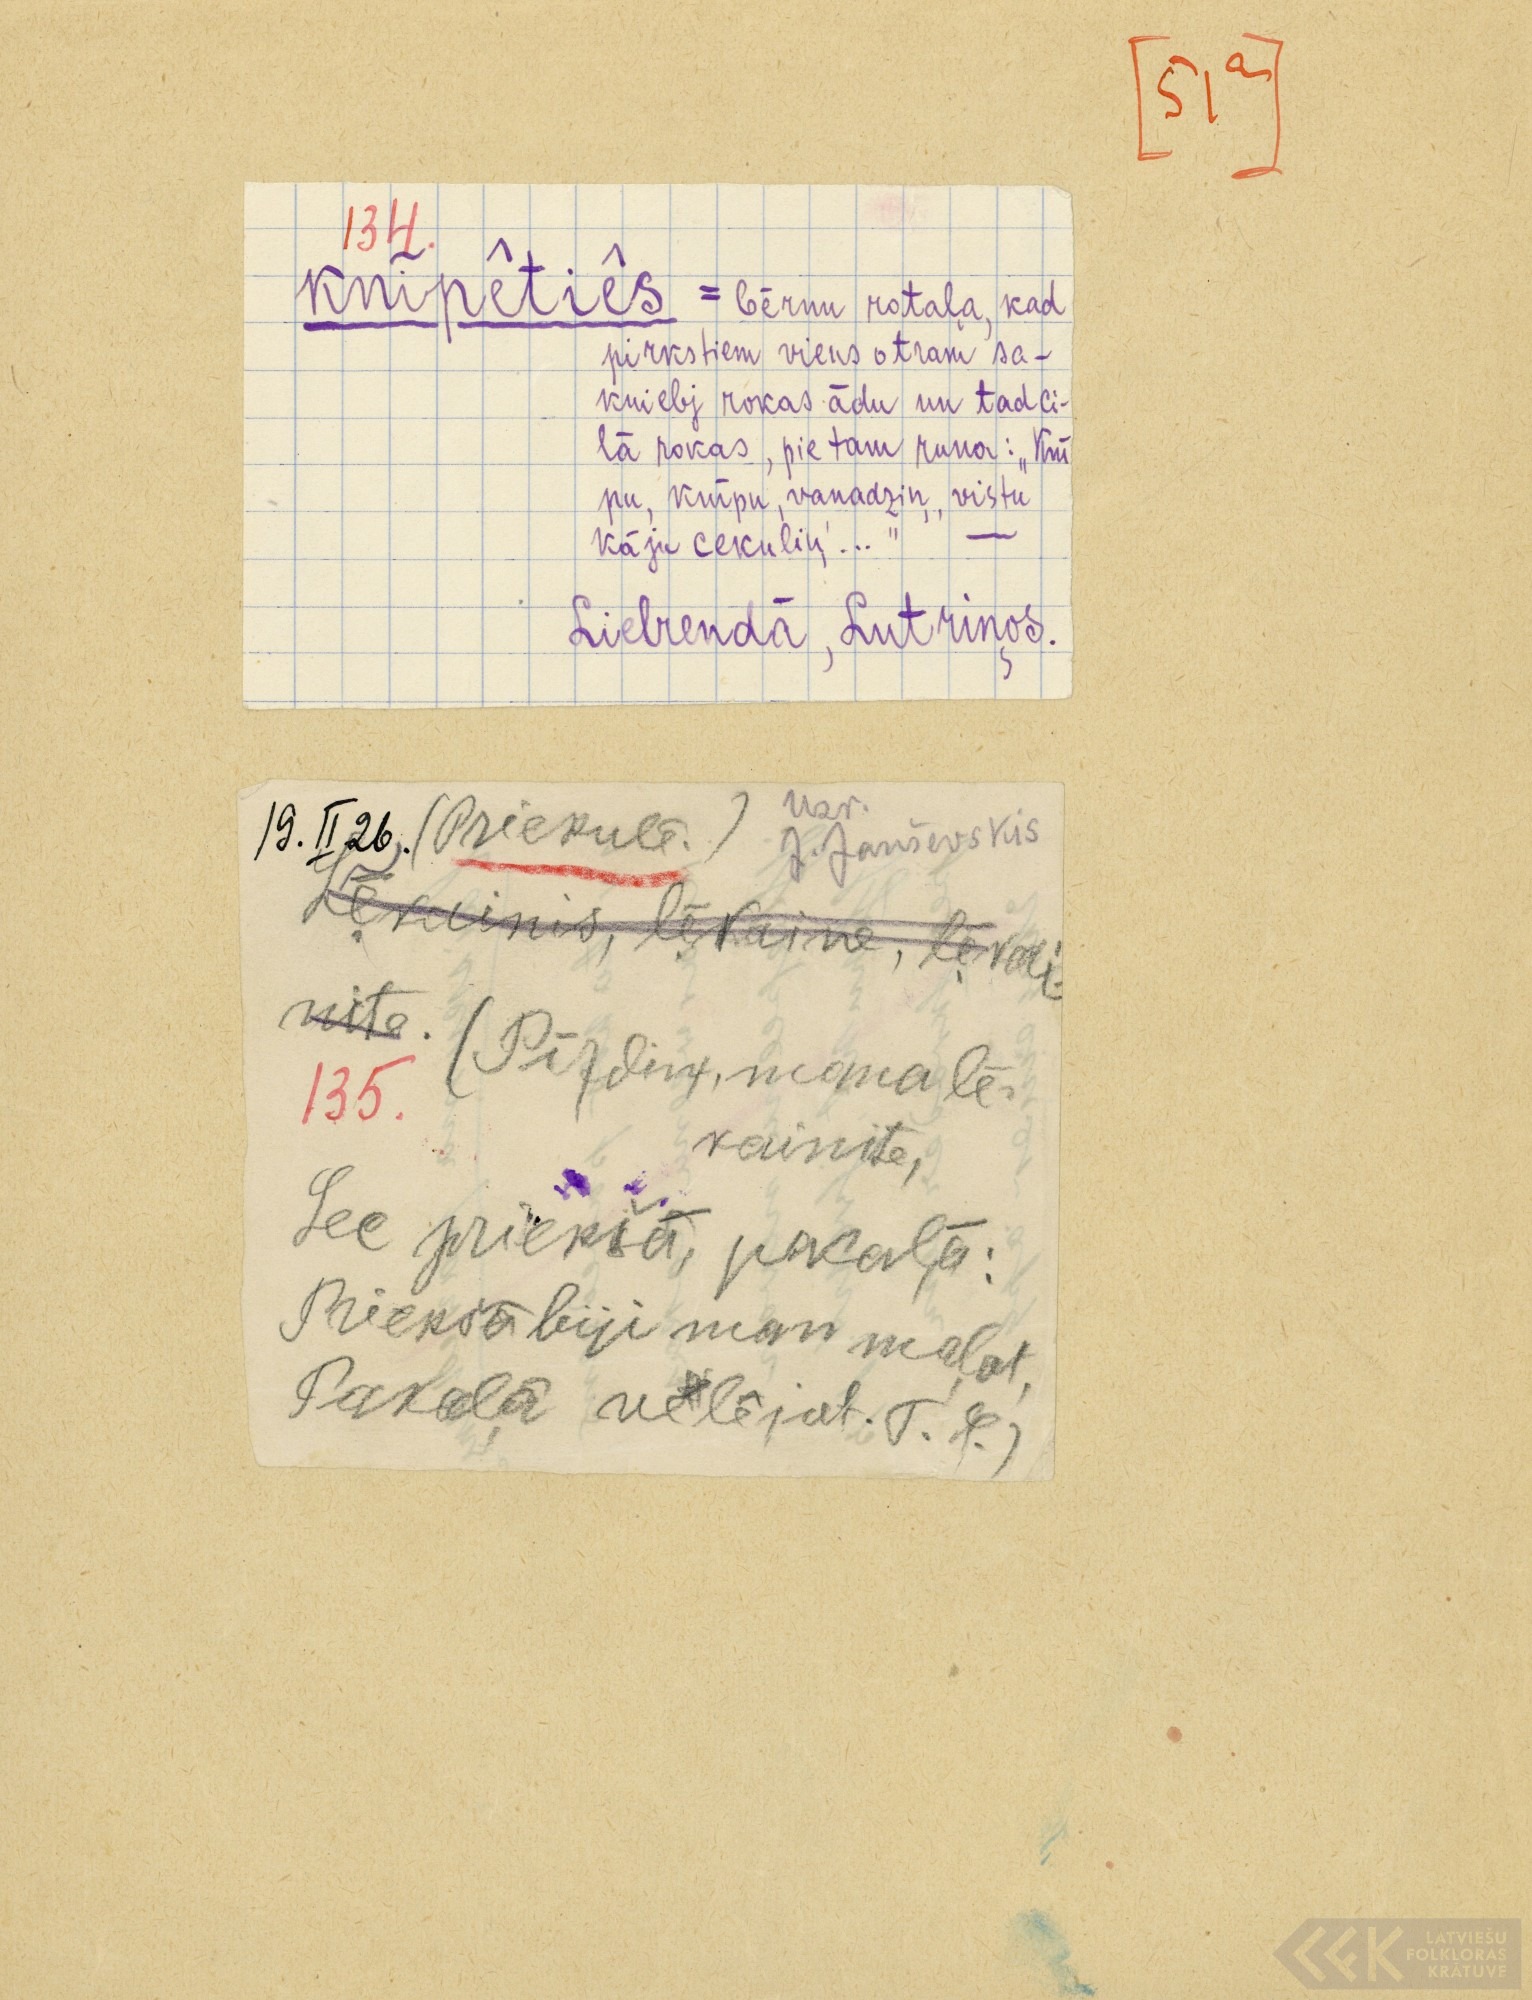 [51a]
134.
knĩpêtiês = bērnu rotaļa, kad
pirkstiem viens otram sa-
kniebj rokas ādu un tad ci-
lā rokas, pie tam runa: „Knī
pu, knīpu, vanadziņ, vistu
kāju cekuliņ'..." —
Lielrendā, Lutriņos.
19. II 26. (Priekulē.) Uzr.
J. Janševskis
Lę̄kainis, lę̄kaine, lę̄kai-
nīte. (Pīzdiņ, mana lē-
135.
kainīte,
Lec priekšā, pakaļā:
Priekšā biji man maļot,
Pakaļā vēlējot. T. Dz.)
LATVIEŠU
FOLKLORAS
KRĀTUVE